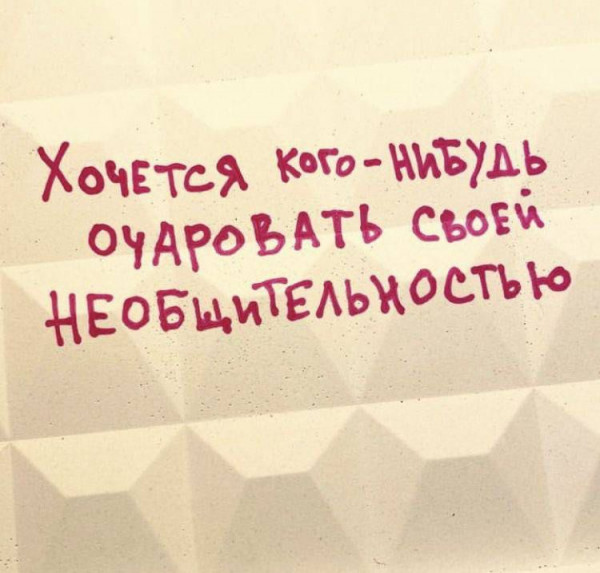 Хочется кого-нибудь
очаровать своей
необщительностью